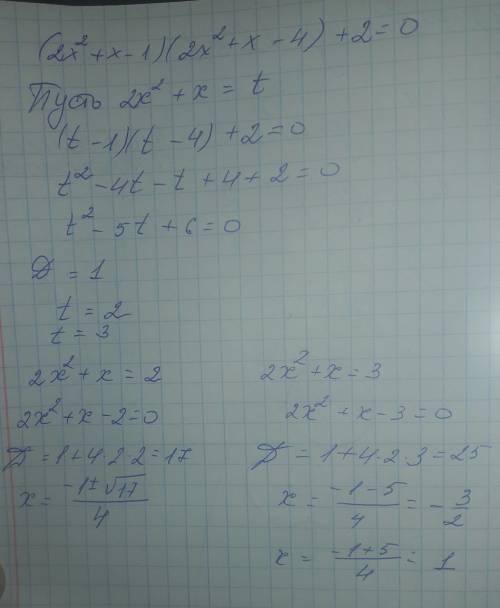 (2x²+x-1)(2x²+x-4)+2=0
Пусть 2x²+x=t
(t-1)(t-4)+2=0
t²-4t-t+4+2=0
t²-5t+6=0
D=1
t=2
t=3
2x²+x=2
2x²+x-2=0
D=1+4·2·2=17
x=(-1±√17)/4
2x²+x=3
2x²+x-3=0
D=1+4·2·3=25
x=(-1-5)/4=-3/2
x=(-1+5)/4=1